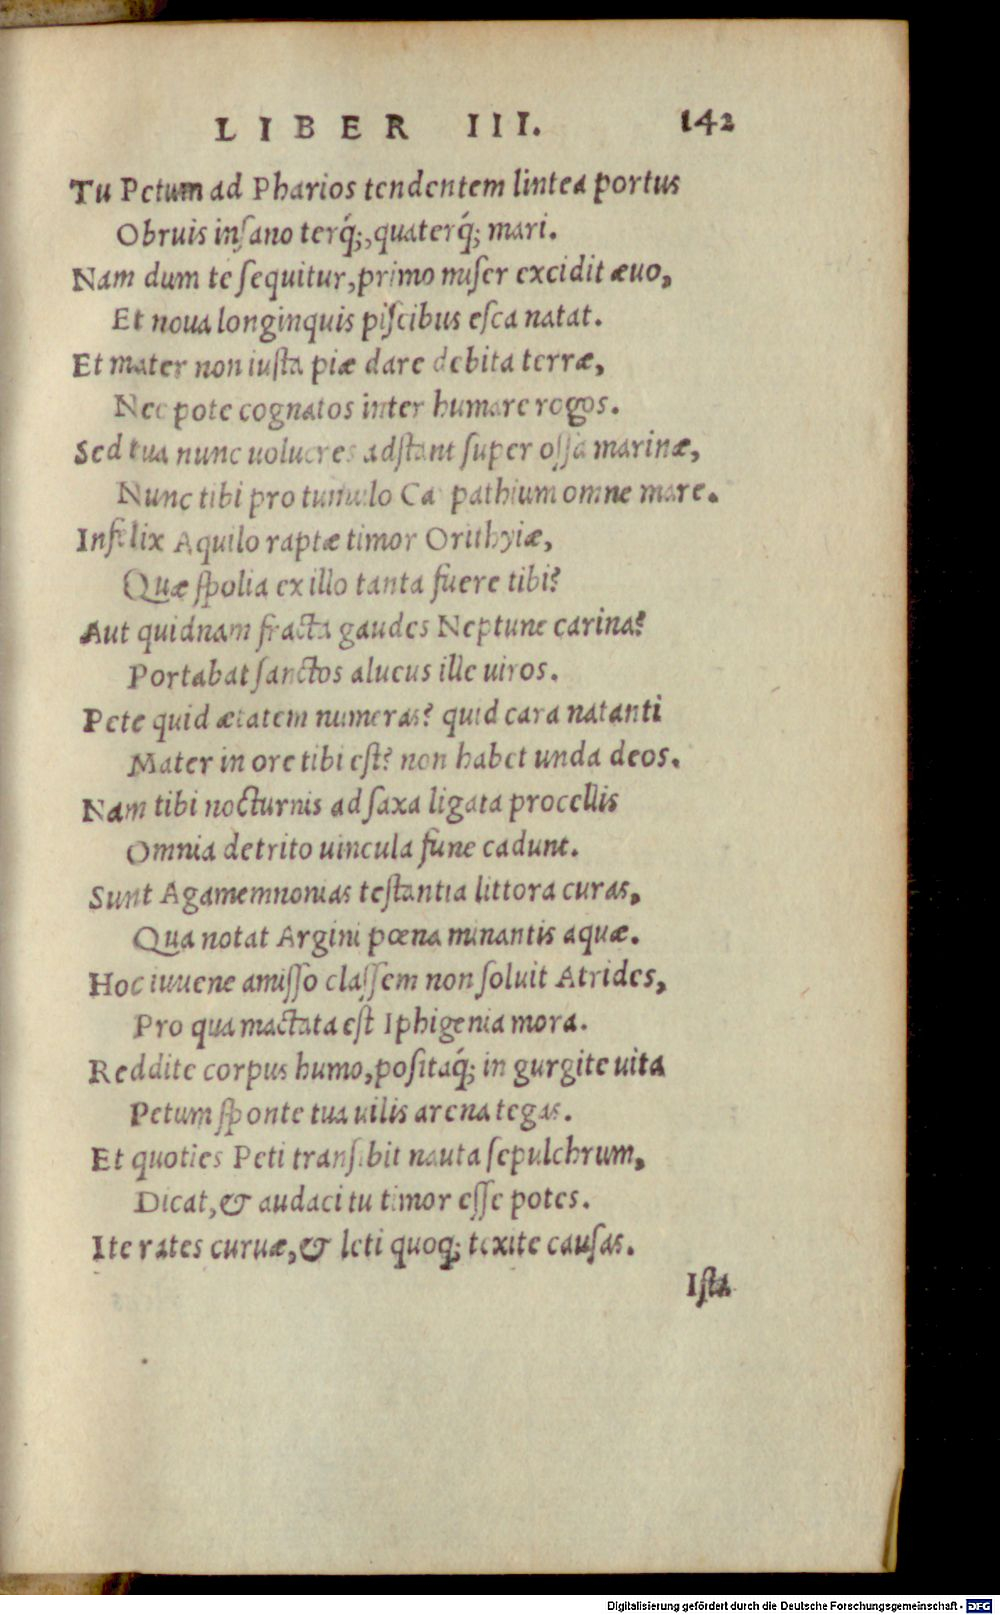 LIBER III. 142
Tu Petum ad Pharios tendentem lintea portus
Obruis insano terq́;, quaterq́; mari.
Nam dum te sequitur, primo miser excidit æuo,
Et noua longinquis piscibus esca natat.
Et mater non iusta piæ dare debita terræ,
Nec pote cognatos inter humare rogos.
Sed tua nunc uolucres adstant super ossa marinæ,
Nunc tibi pro tumulo Ca pathium omne mare.
Infelix Aquilo raptæ timor Orithyiæ,
Quæ spolia ex illo tanta fuere tibi?
Aut quidnam fracta gaudes Neptune carina?
Portabat sanctos alueus ille uiros.
Pete quid ætatem numeras? quid cara natanti
Mater in ore tibi est? non habet unda deos.
Nam tibi nocturnis ad saxa ligata procellis
Omnia detrito uincula fune cadunt.
Sunt Agamemnonias testantia littora curas,
Qua notat Argini pœna minantis aquæ.
Hoc iuuene amisso classem non soluit Atrides,
Pro qua mactata est Iphigenia mora.
Reddite corpus humo, positaq́; in gurgite uita
Petum sponte tua uilis arena tegas.
Et quoties Peti transibit nauta sepulchrum,
Dicat, & audaci tu timor esse potes.
Ite rates curuæ, & leti quoq; texite causas.
Ista
Digitalisierung gefördert durch die Deutsche Forschungsgemeinschaft - DFG